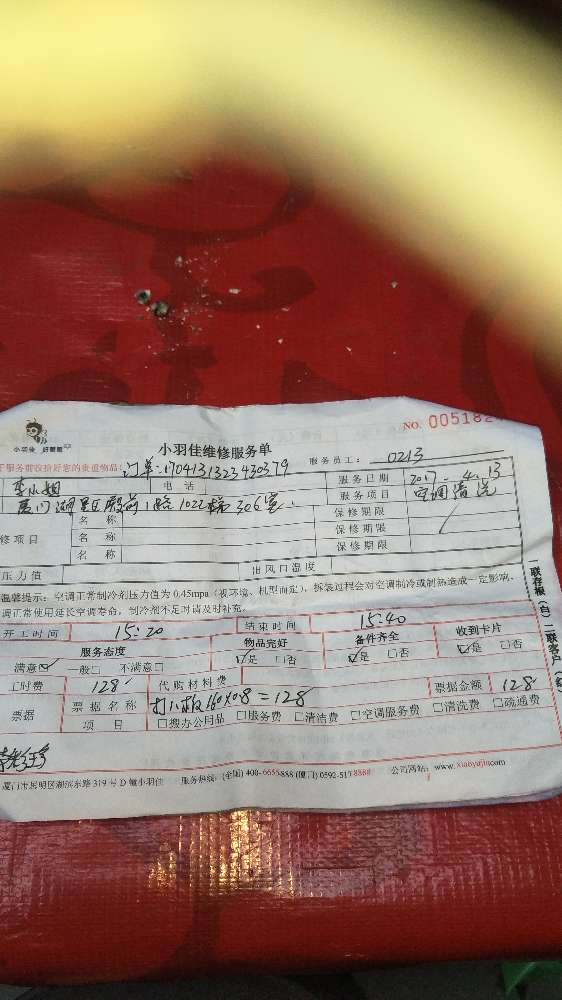 小羽佳 好帮帮
小羽佳维修服务单
NO. 005182
服务前收拾好您的贵重物品
订单:1704131323430379
服务员工: 0213
李小姐
电 话
服务日期
2017.4.13
厦门湖里区殿前1路1022梯306室
服务项目
空调清洗
修项目
名 称
保修期限
名 称
保修期限
名 称
保修期限
压力值
出风口温度
温馨提示:空调正常制冷剂压力值为 0.45mpa(视环境、机型而定),拆装过程会对空调制冷或制热造成一定影响,
调正常使用延长空调寿命,制冷剂不足时请及时补充。
开工时间
15:20
结束时间
15:40
服务态度
物品完好
备件齐全
收到卡片
满意☑ 一般□ 不满意□
☑是 □否
☑是 □否
☑是 □否
工时费
128
代购材料费
票据金额
128
票据
票据名称
打八折 160×0.8=128
项 目
□搬办公用品 □服务费 □清洁费 □空调服务费 □清洗费 □疏通费
厦门市思明区湖滨东路 319 号 D 幢小羽佳
服务热线:(全国) 400-6655888 (厦门) 0592-5178868
公司网站: www.xiaoyujia.com
一联存根(白)二联客户